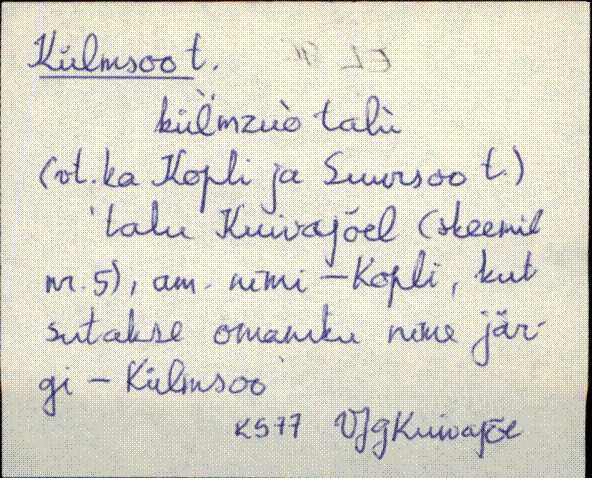 Külmsoo t.
külmzuo talu
(vt. ka Kopli ja Suursoo t.)
talu Kuivajõel (skeemil
nr. 5), am. nimi – Kopli, kut
sutakse omaniku nime jär-
gi – Külmsoo
KS77 VJg Kuivajõe